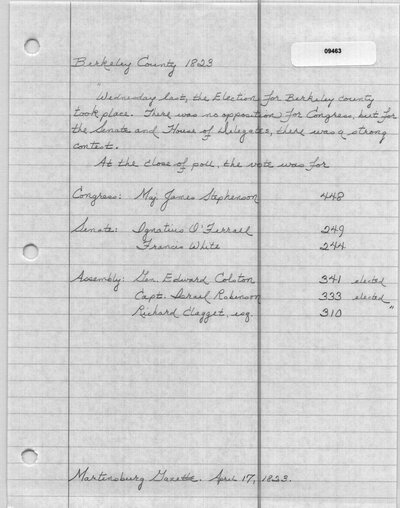 09463
Berkeley County 1823
Wednesday last, the Election for Berkeley county
took place. There was no opposition for Congress, but for
the Senate and House of Delegates, there was a strong
contest.
At the close of poll, the vote was for
Congress: Maj James Stephenson 448
Senate: Ignatius O'Ferrall 249
Francis White 244
Assembly: Gen. Edward Colston 341 elected
Capt. Israel Robinson 333 elected
Richard Clagget, esq 310 "
Martinsburg Gazette. April 17, 1823.